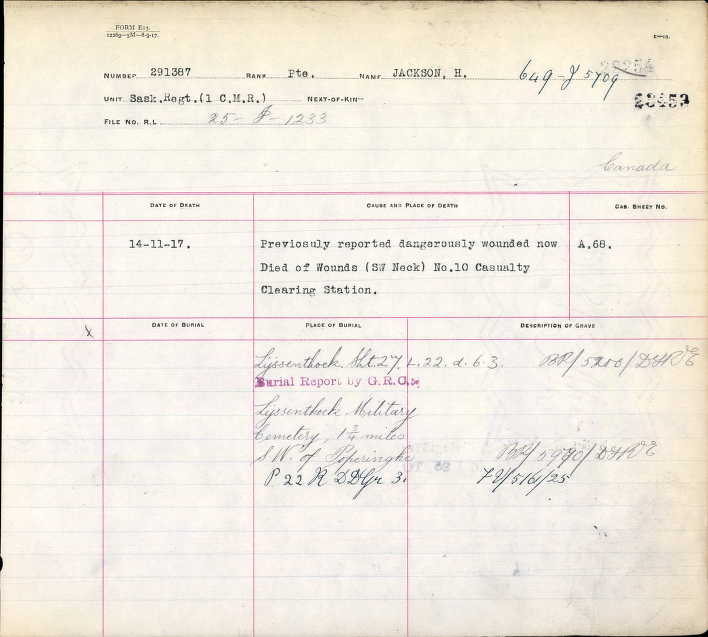 FORM E15.
12269—5M—8-9-17.
NUMBER 291387 RANK Pte. NAME JACKSON, H. 649-J 5709
23453
UNIT Sask.Regt.(1 C.M.R.) NEXT-OF-KIN—
FILE NO. R.L. 25-J-1233
Canada
DATE OF DEATH CAUSE AND PLACE OF DEATH CAS. SHEET NO.
14-11-17. Previosuly reported dangerously wounded now A.68.
Died of Wounds (SW Neck) No.10 Casualty
Clearing Station.
DATE OF BURIAL PLACE OF BURIAL DESCRIPTION OF GRAVE
x
Lijssenthoek Sht. 27. L. 22. d. 6. 3.
Burial Report by G.R.C.
Lijssenthoek Military
Cemetery, 1¾ miles
S.W. of Poperinghe
P 22 R DD Gr 3.